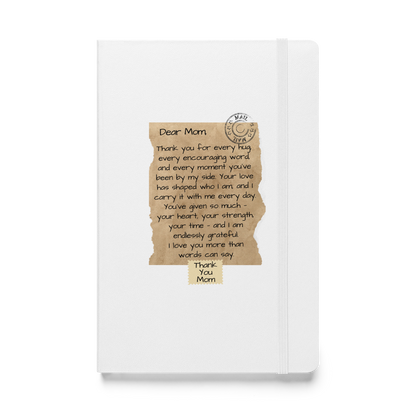 Dear Mom,
Thank you for every hug,
every encouraging word,
and every moment you've
been by my side. Your love
has shaped who I am, and I
carry it with me every day.
You've given so much -
your heart, your strength,
your time - and I am
endlessly grateful.
I love you more than
words can say.
Thank
You
Mom